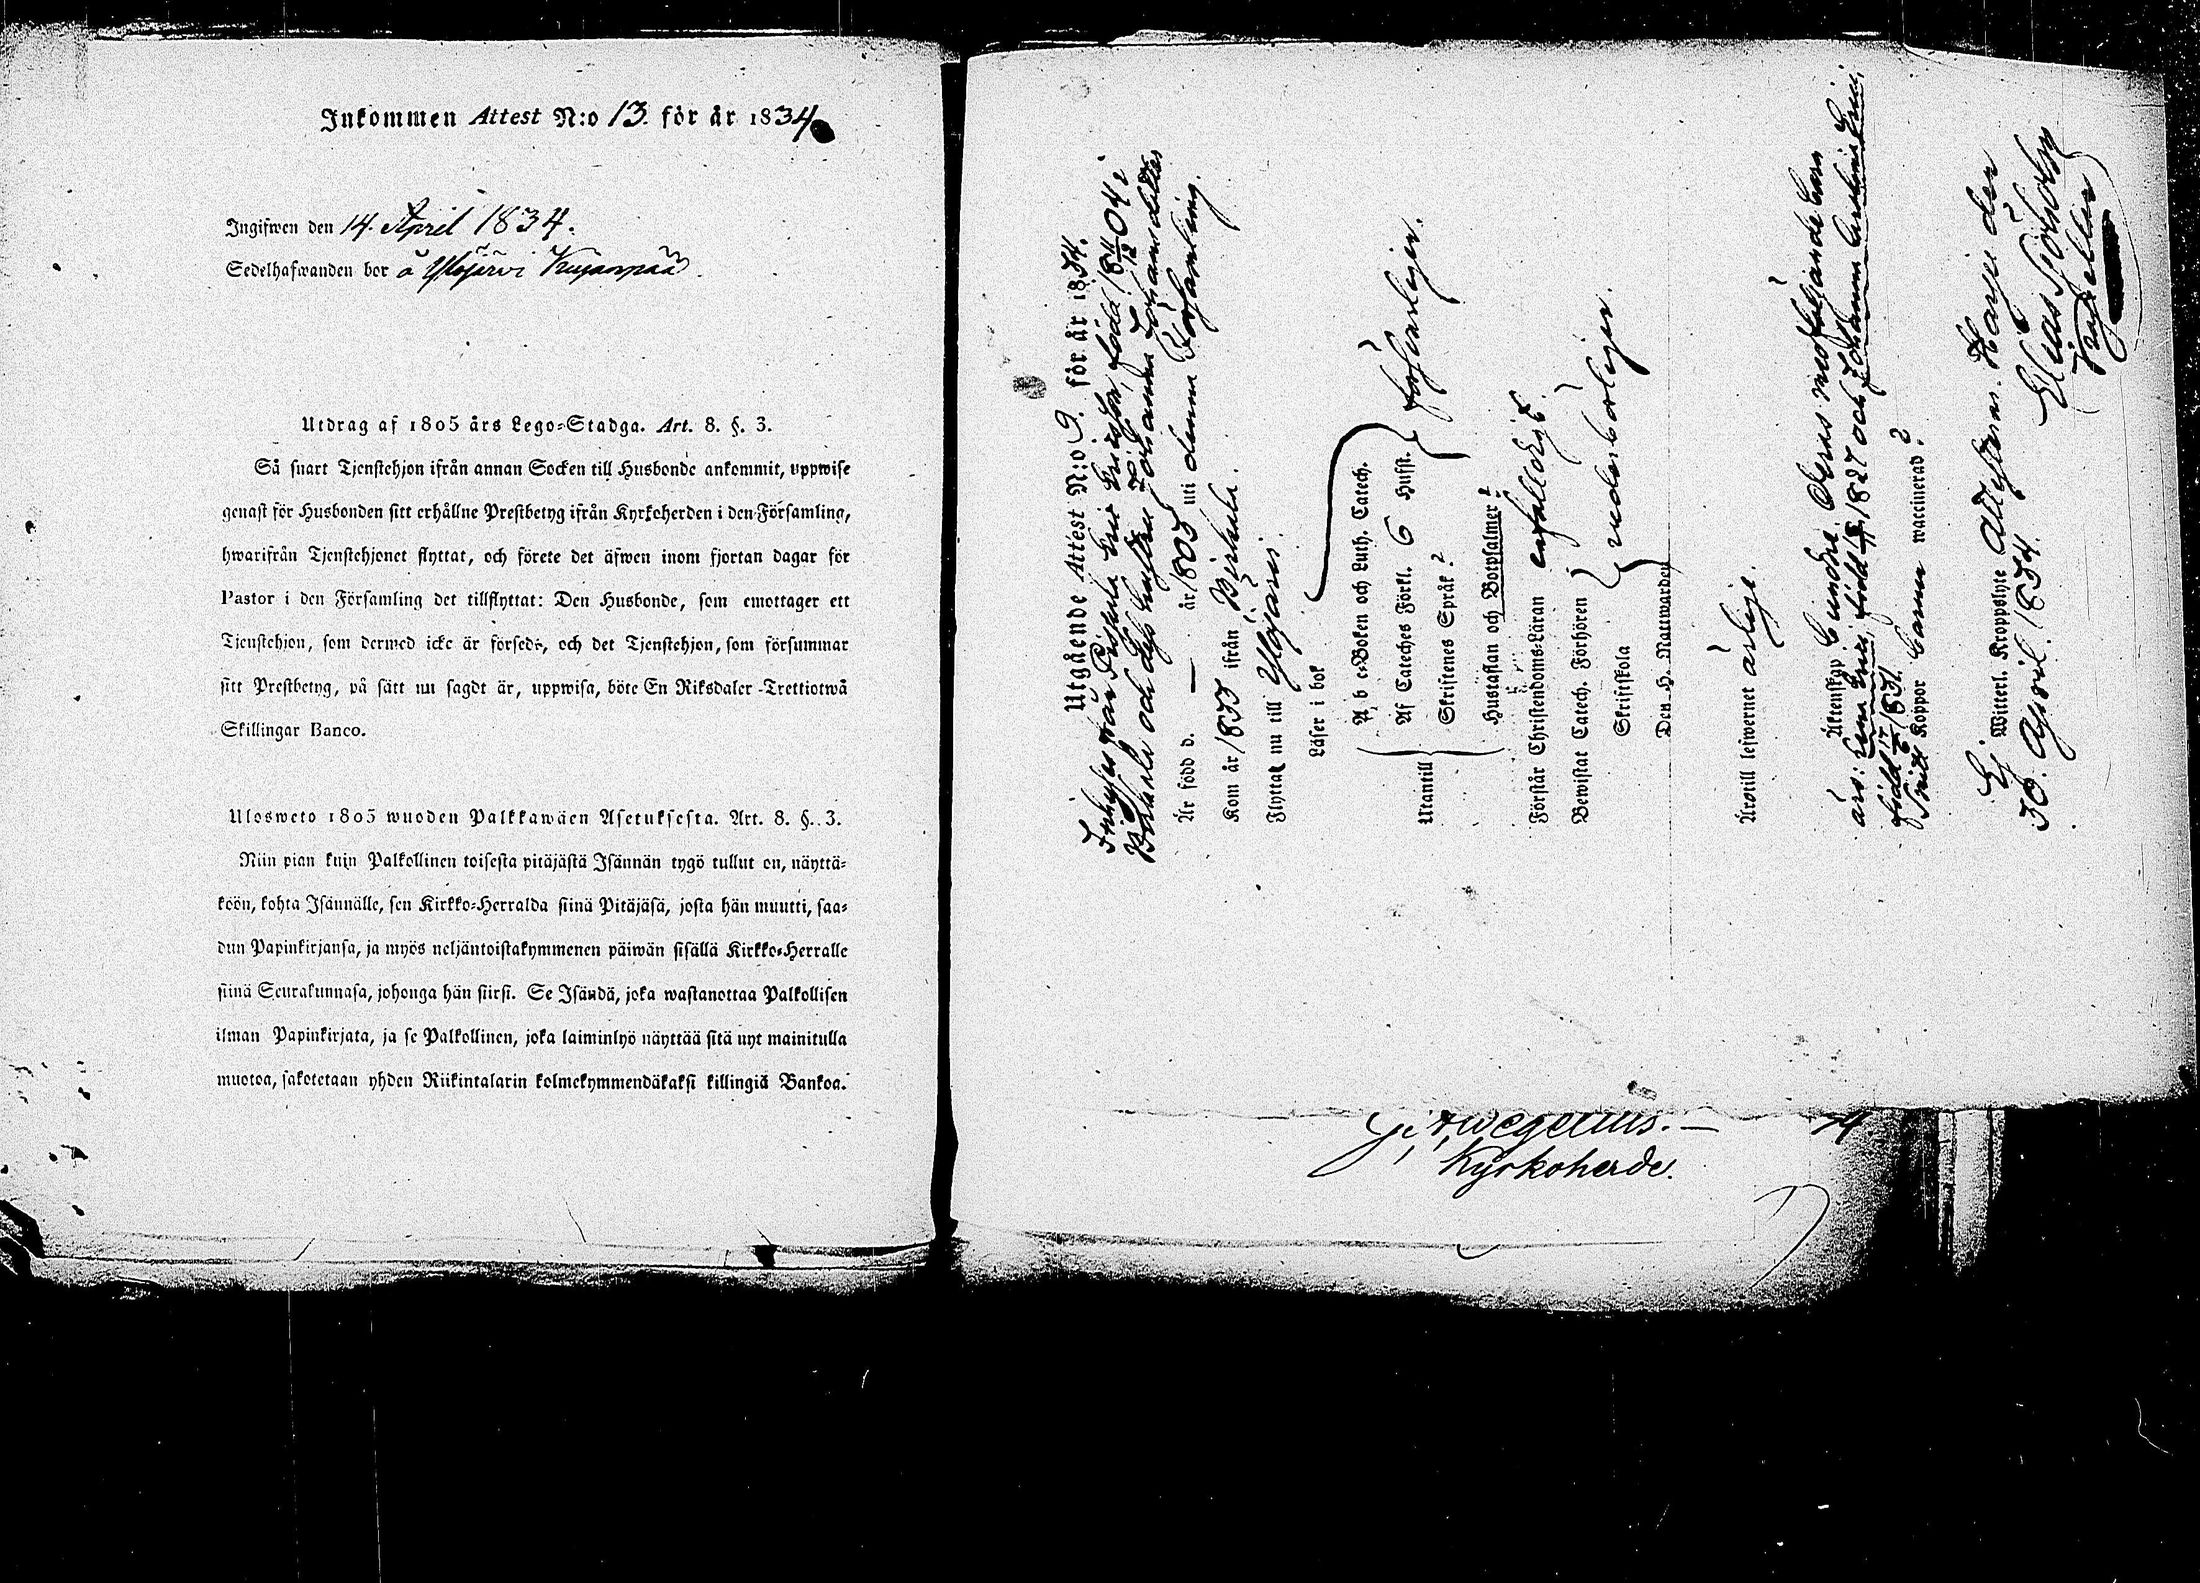 Inkommen Attest N:o 13. för år 1834
Ingifwen den 14. April 1834.
Sedelhafwanden bor å Ylöjärvi Kujanpää.
Utdrag af 1805 års Lego-Stadga. Art. 8. §. 3.
Så snart Tjenstehjon ifrån annan Socken till Husbonde ankommit, uppwise
genast för Husbonden sitt erhållne Prestbetyg ifrån Kyrkoherden i den Församling,
hwarifrån Tjenstehjonet flyttat, och förete det äfwen inom fjortan dagar för
Pastor i den Församling det tillflyttat: Den Husbonde, som emottager ett
Tjenstehjon, som dermed icke är försedt, och det Tjenstehjon, som försummar
sitt Prestbetyg, på sätt nu sagdt är, uppwisa, böte En Riksdaler Trettiotwå
Skillingar Banco.
Ulosweto 1805 wuoden Palkkawäen Asetuksesta. Art. 8. §. 3.
Niin pian kuin Palkollinen toisesta pitäjästä Isännän tygö tullut on, näyttä-
köön, kohta Isännälle, sen Kirkko-Herralda siinä Pitäjäsä, josta hän muutti, saa-
dun Papinkirjansa, ja myös neljäntoistakymmenen päiwän sisällä Kirkko-Herralle
siinä Seurakunnasa, johonga hän siirsi. Se Isändä, joka wastanottaa Palkollisen
ilman Papinkirjata, ja se Palkollinen, joka laiminlyö näyttää sitä nyt mainitulla
muotoa, sakotetaan yhden Riikintalarin kolmekymmendäkaksi killingiä Bankoa.
Utgående Attest N:o 9. för år 1834.
Inhyses från född 18 4/12 04 i
Birkala och dess hustru Johanna Johansdotter
Är född d. — år 1805 uti denna Församling.
Kom år 1833 ifrån Birkala.
Flyttar nu till Ylöjärvi.
Läser i bok
Utantill
A, b c-Boken och Luth. Catech.
Af Cateches Förkl. 6 Hufst. försvarligen.
Skriftenes Språk?
Hustaflan och Botpsalmer?
Förstår Christendoms-Läran enfalldigt.
Bewistat Catech. Förhören
Skriftskola vederbörligen.
Den H. Nattwarden
Årotill lefwernet ärlige.
Äktenskap Deras medföljande barn
äro: född 1827 och Johanna
född 17/6 1831.
Koppor wacinerad?
Witterl. Kroppslyte Ej Attesteras. Harju den
30. April. 1834.
Elias
Kapellan
Kyrkoherde.